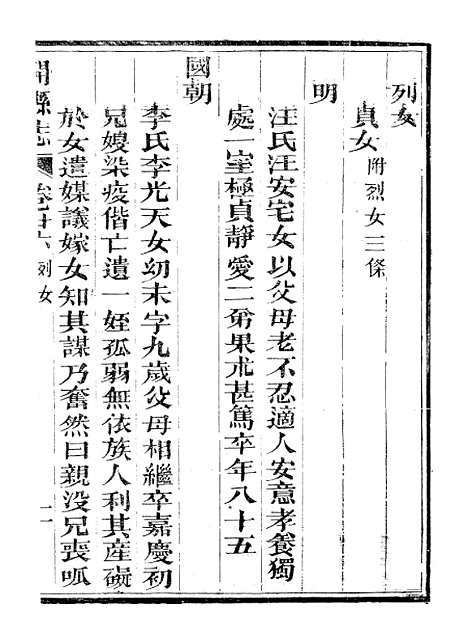 列女
貞女附烈女三條
明
汪氏汪安宅女以父母老不忍適人安意孝養獨
處一室極貞靜愛二弟果朮甚篤卒年八十五
國朝
李氏李光天女幼未字九歲父母相繼卒嘉慶初
兄嫂染疫偕亡遺一姪孤弱無依族人利其產礙
於女遣媒議嫁女知其謀乃奮然曰親没兄喪呱
開縣志 卷廿六 列女 二